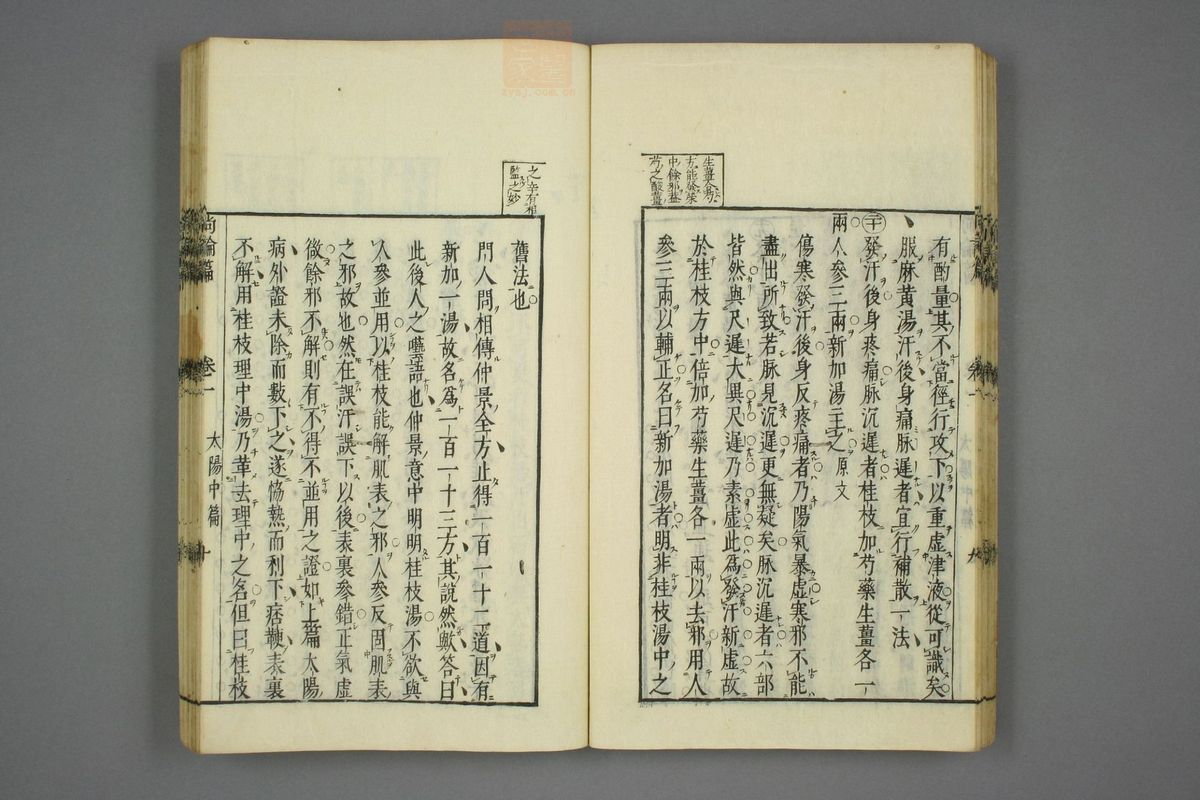 有酌量其不當徑行攻下以重虛津液從可識矣
服麻黃湯汗後身痛脉遲者宜行補散一法
發汗後身疼痛脉沉遲者桂枝加芍藥生薑各一
兩人參三兩新加湯主之原文
傷寒發汗後身反疼痛者乃陽氣暴虛寒邪不能
盡出所致若脉見沉遲更無疑矣脉沉遲者六部
皆然與尺遲大異尺遲乃素虛此爲發汗新虛故
於桂枝方中倍加芍藥生薑各一兩以去邪用人
參三兩以輔正名曰新加湯者明非桂枝湯中之
生薑
方能發榮
中餘邪蓋
芍之酸薑
之辛有相
監之妙
舊法也
門人問相傳仲景全方止得一百一十二道因有
新加一湯故名爲一百一十三方其說然歟答曰
此後人之囈語也仲景意中明明桂枝湯不欲與
人參並用以桂枝能解肌表之邪人參反固肌表
之邪故也然在誤汗誤下以後表裏參錯正氣虛
微餘邪不解則有不得不並用之證如上篇太陽
病外證未除而數下之遂恊熱而利下痞鞕表裏
不解用桂枝理中湯乃革去理中之名但曰桂枝
尚論篇
卷一
太陽中篇
十
zysj.com.cn